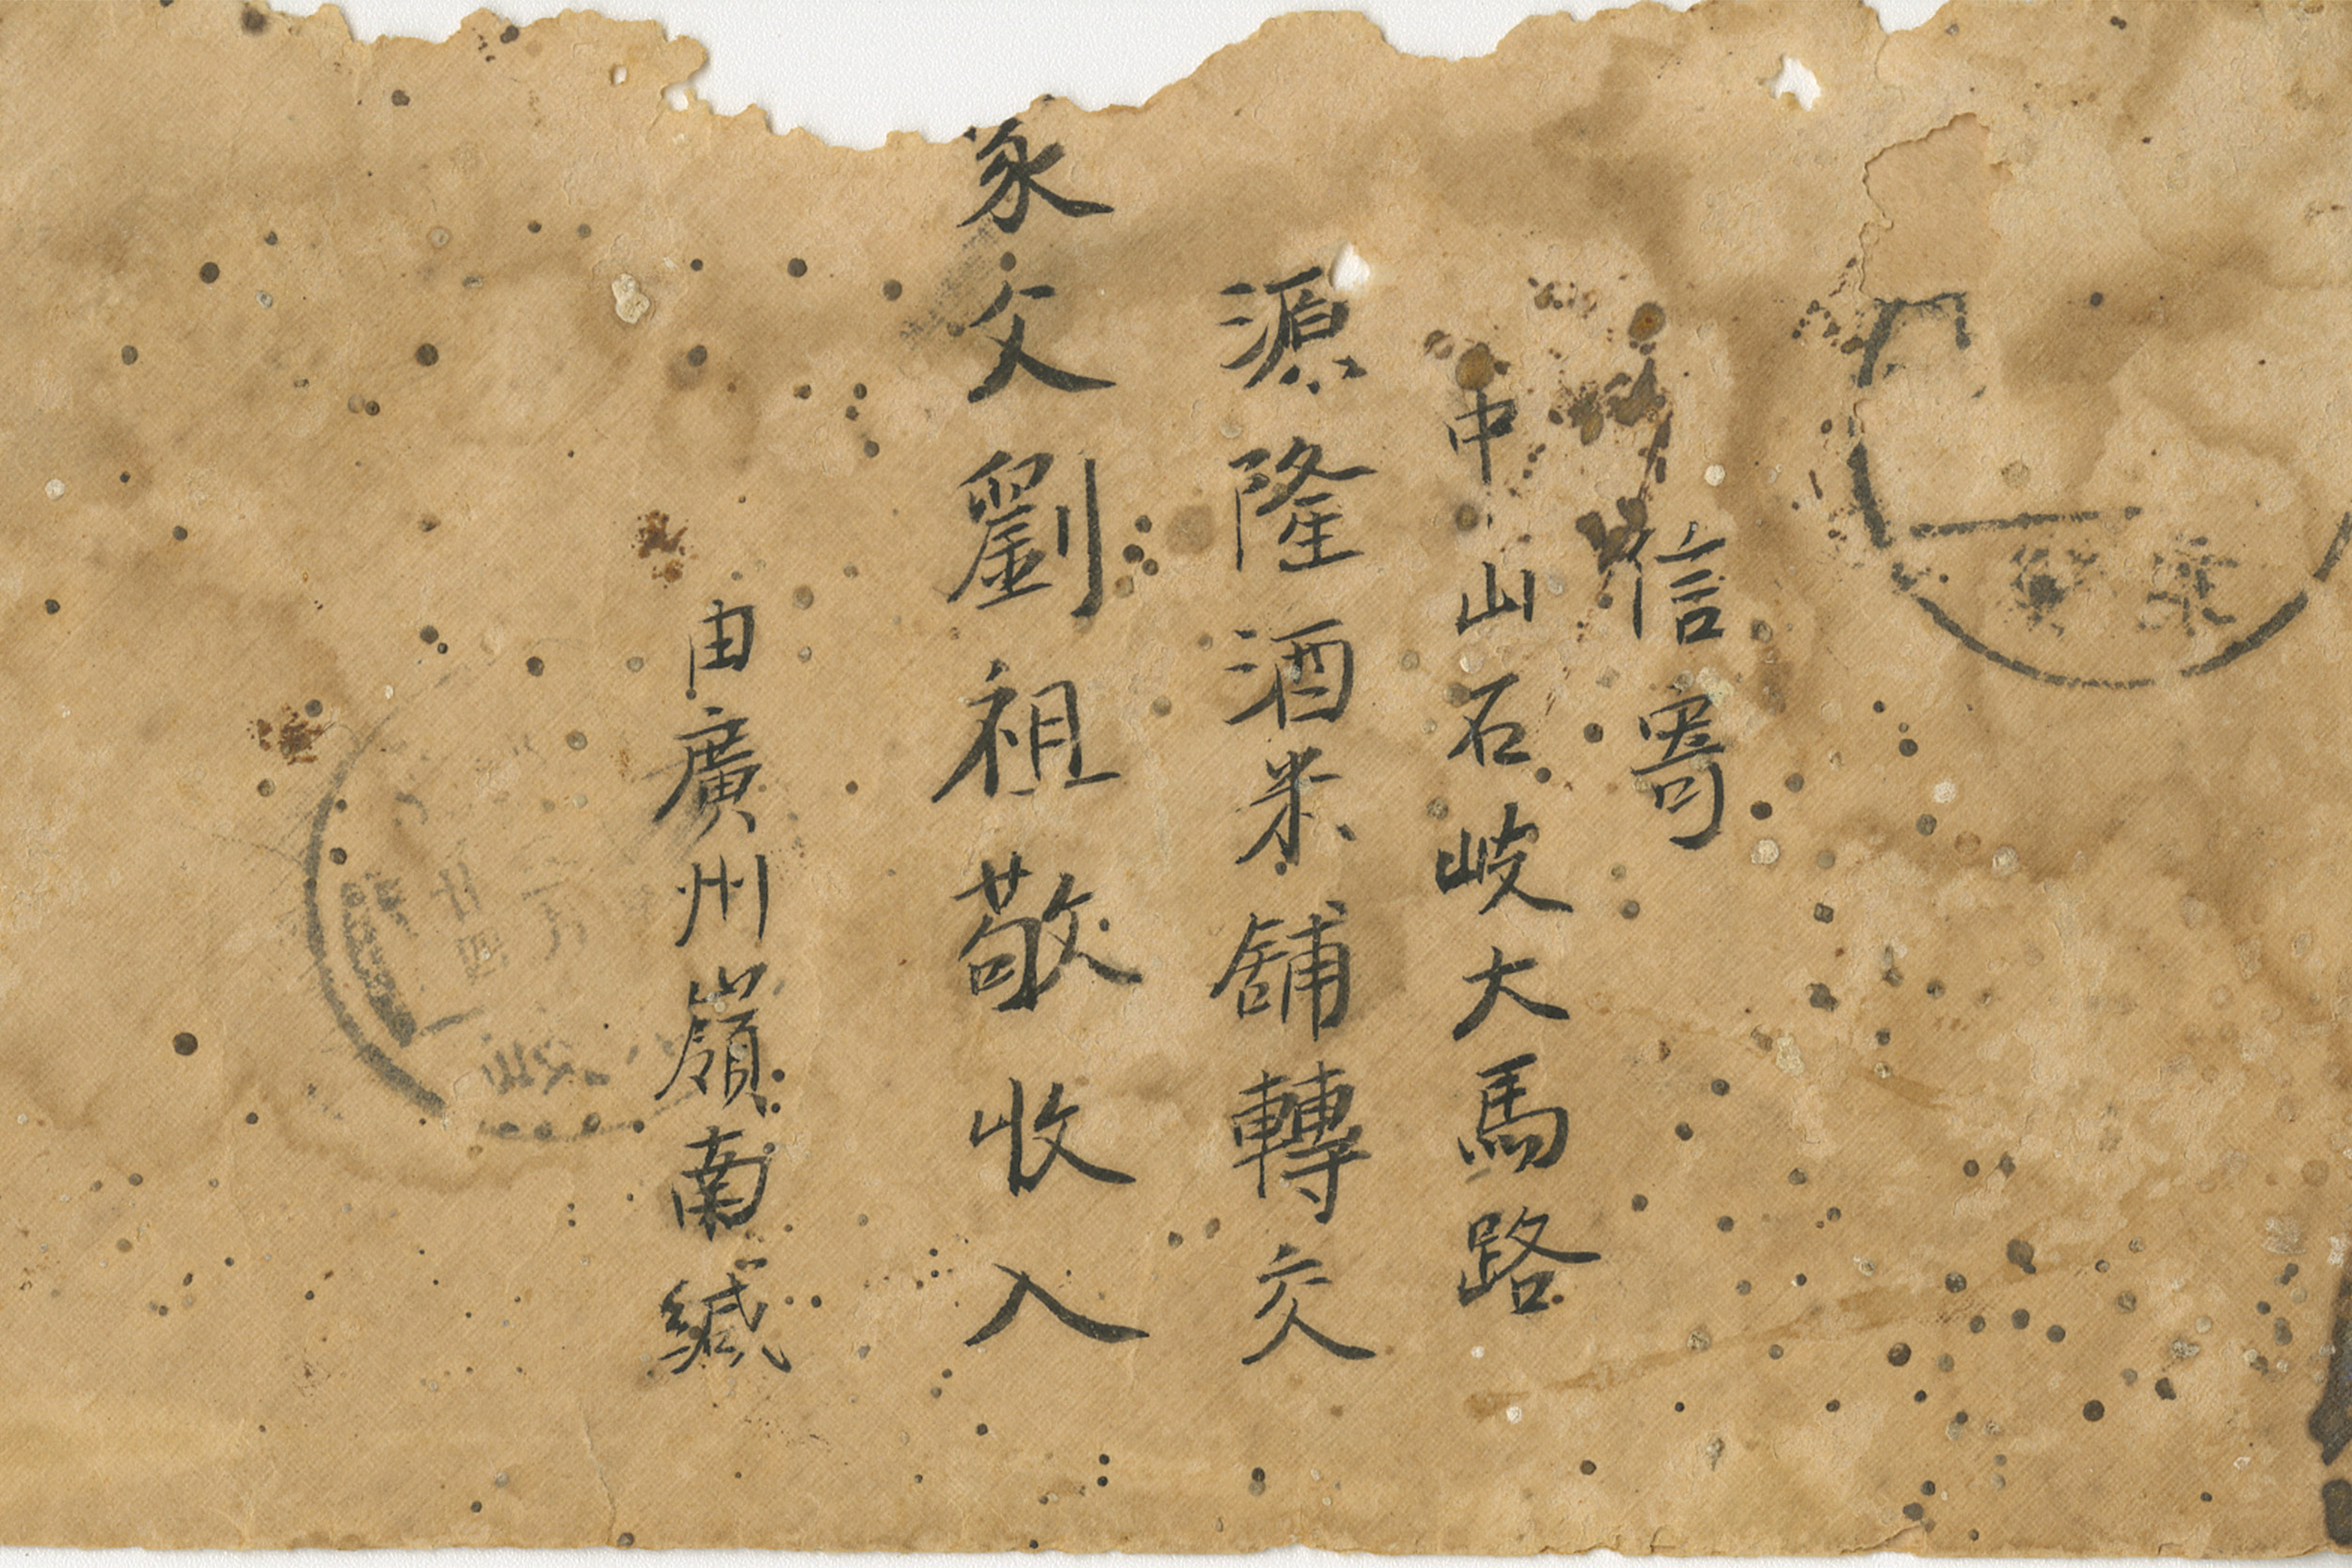 信寄
中山石岐大馬路
源隆酒米舖轉交
家父劉祖敬收入
由廣州嶺南緘
廿四